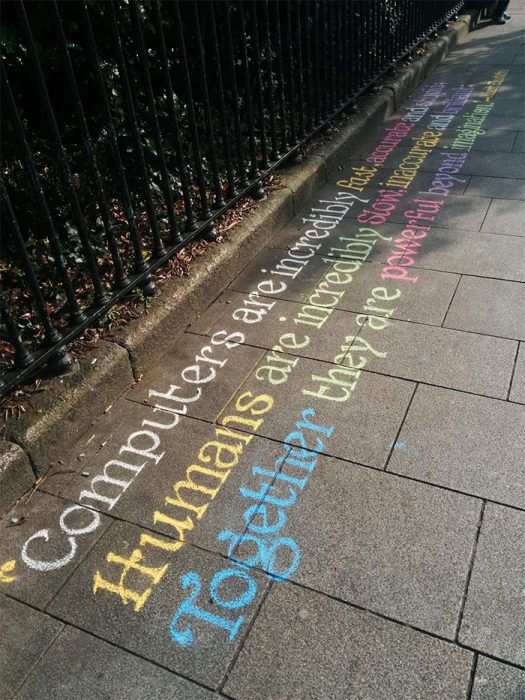 " Computers are incredibly fast accurate and stupid
Humans are incredibly slow inaccurate and brilliant
Together they are powerful beyond imagination"